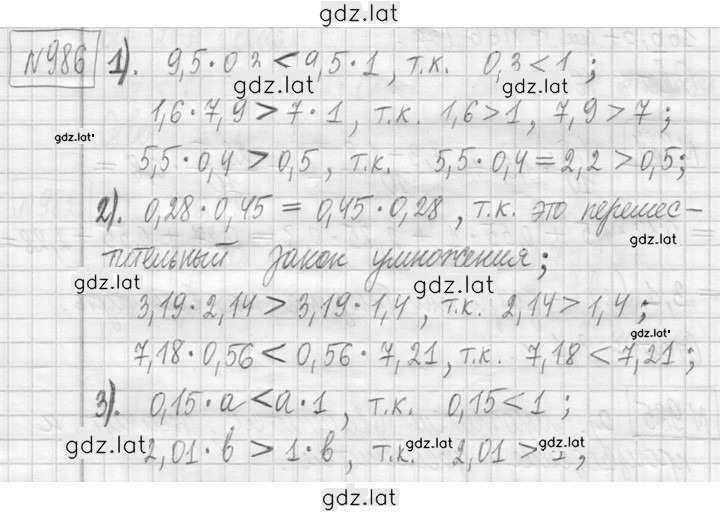 gdz.lat
№986 1). 9,5·0,3 < 9,5·1, т.к. 0,3 < 1;
gdz.lat gdz.lat
1,6·7,9 > 7·1, т.к. 1,6 > 1, 7,9 > 7;
gdz.lat
5,5·0,4 > 0,5, т.к. 5,5·0,4 = 2,2 > 0,5;
2). 0,28·0,45 = 0,45·0,28, т.к. это перемес-
gdz.lat
тительный закон умножения;
gdz.lat gdz.lat
3,19·2,14 > 3,19·1,4, т.к. 2,14 > 1,4;
gdz.lat
7,18·0,56 < 0,56·7,21, т.к. 7,18 < 7,21;
3). 0,15·a < a·1, т.к. 0,15 < 1;
gdz.lat gdz.lat gdz.lat
2,01·b > 1·b, т.к. 2,01 > 1;
gdz.lat